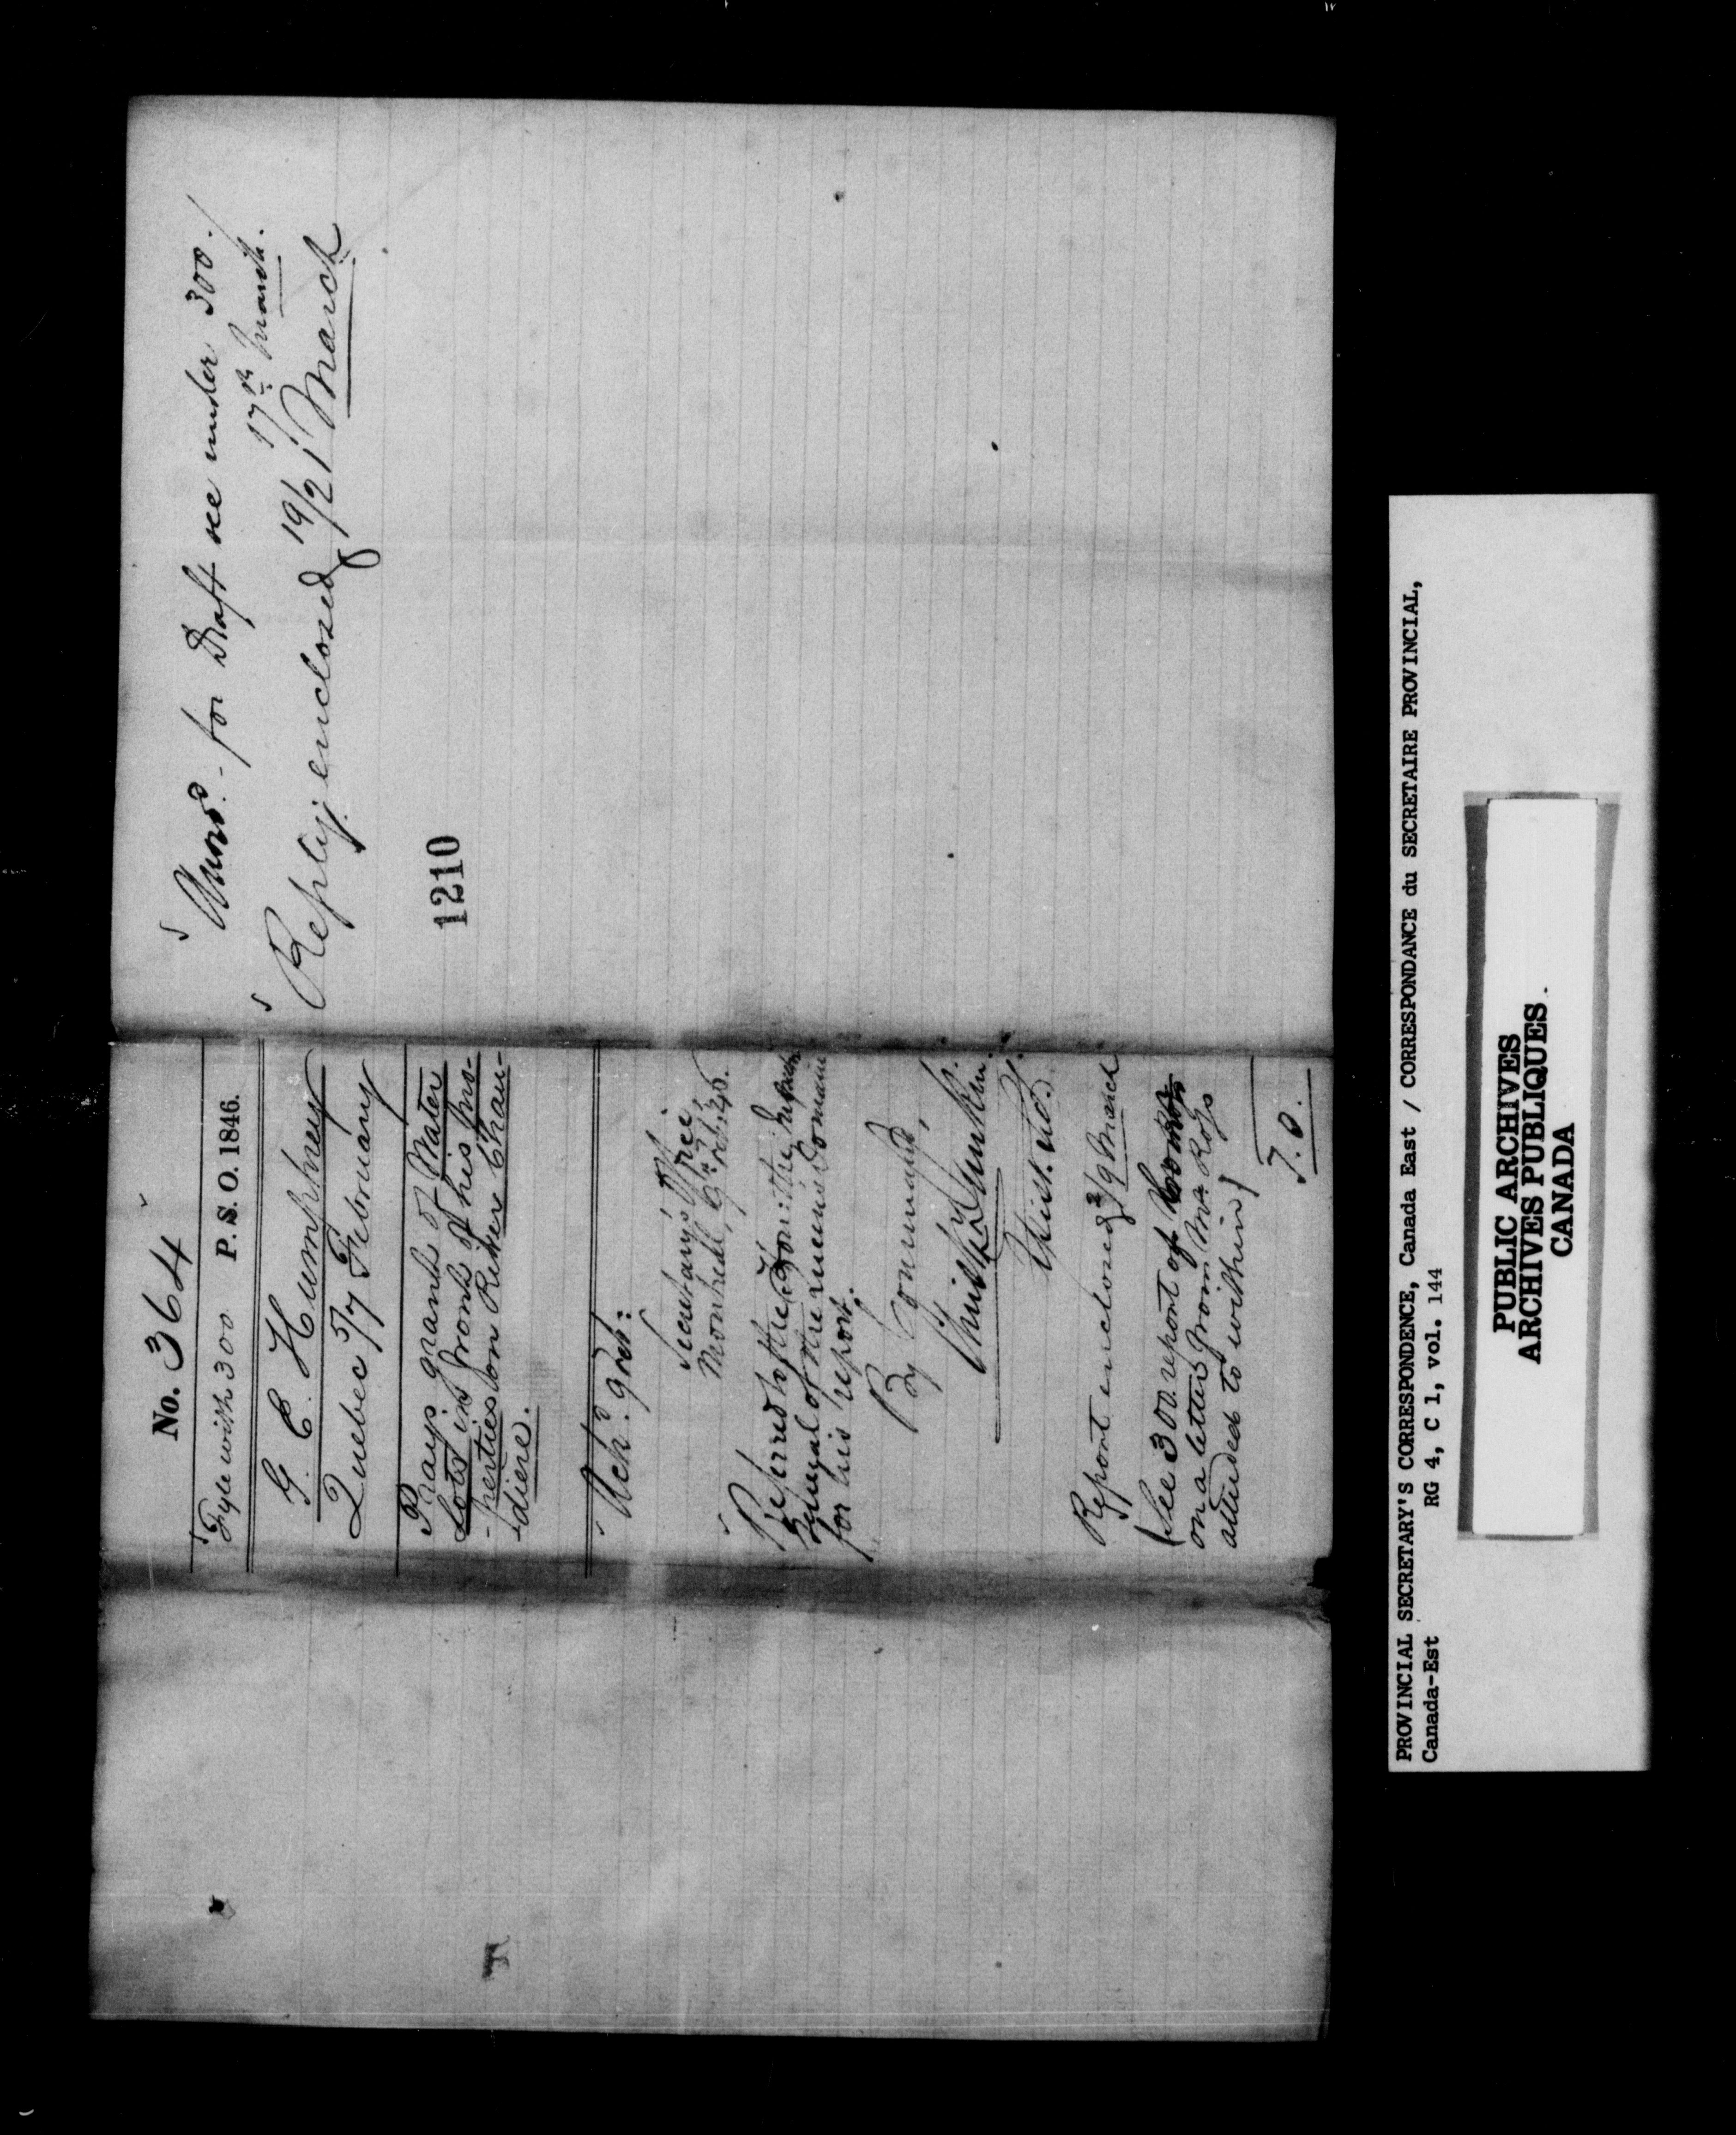 No. 364
Fyle with 300 P. S. O. 1846.
G. E. Humphrey
Quebec 5/7 February
Prays grants of Water
Lots in front of his pro-
-perties on River Chau-
diere.
Ackd. 9 Feb:
Secretary's Office,
Montreal, 9 Feb: 46.
Referred to the
General of the Queen's Domain
for his report.
By Command,
Christ Dunkin.
Assist. Secy.
Report enclosed 3/9 March
(See 300. report of
on a letter from Mr.
alluded to within)
T. O.
Answd. - for Draft see under 300./
17th March.
Reply enclosed 19/21 March
1210
PROVINCIAL SECRETARY'S CORRESPONDENCE, Canada East / CORRESPONDANCE du SECRETAIRE PROVINCIAL,
Canada-Est RG 4, C 1, vol. 144
PUBLIC ARCHIVES
ARCHIVES PUBLIQUES
CANADA